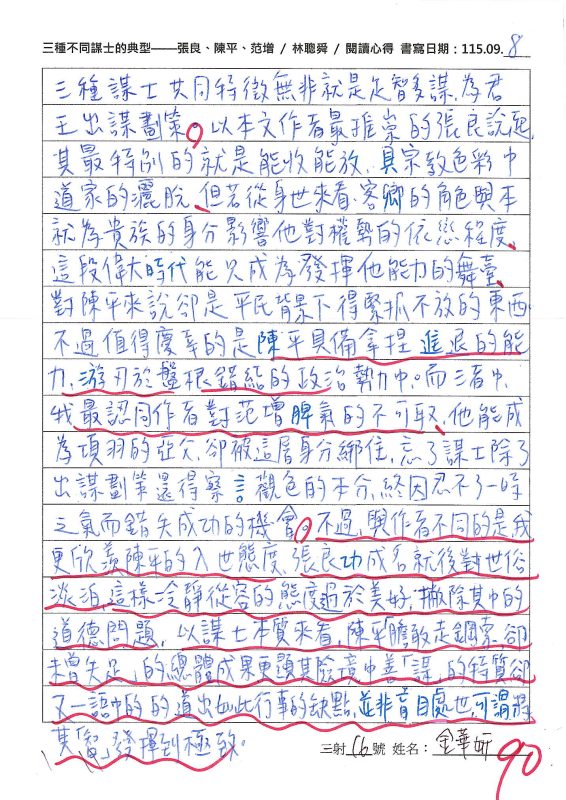 三種不同謀士的典型——張良、陳平、范增 / 林聰舜 / 閱讀心得 書寫日期：115.09.8
三種謀士共同特徵無非就是足智多謀，為君
王出謀劃策，以本文作者最推崇的張良說起，
其最特別的就是能收能放，具宗教色彩中
道家的灑脫，但若從身世來看，客卿的角色與本
就為貴族的身分影響他對權勢的依戀程度、
這段偉大時代能只成為發揮他能力的舞臺、
對陳平來說卻是平民背景下得緊抓不放的東西
不過值得慶幸的是陳平具備拿捏進退的能
力，游刃於盤根錯結的政治勢力中。而三者中，
我最認同作者對范增脾氣的不可取、他能成
為項羽的亞父，卻被這層身分綁住，忘了謀士除了
出謀劃策還得察言觀色的本分，終因忍不了一時
之氣而錯失成功的機會。不過，與作者不同的是我
更欣羨陳平的入世態度，張良功成名就後對世俗
淡泊，這樣冷靜從容的態度過於美好，撇除其中的
道德問題，以謀士本質來看，陳平「膽敢走鋼索，卻
未曾失足」的總體成果更顯其險意中善「謀」的特質，卻
又一語中的的道出如此行事的缺點，並非盲目處世，可謂將
其「智」發揮到極致。
三射 16號 姓名：金華妍
90